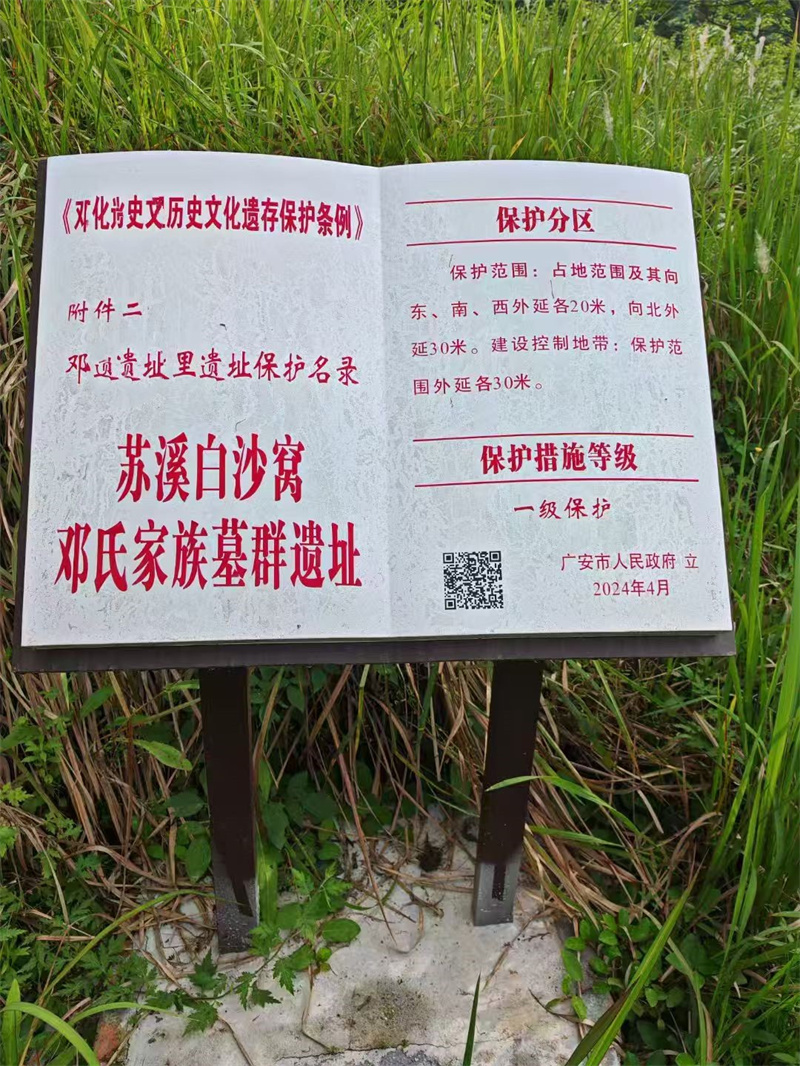 《化史文历史文化遗存保护条例》
附件二
邓遗址里遗址保护名录
苏溪白沙窝
邓氏家族墓群遗址
保护分区
保护范围：占地范围及其向
东、南、西外延各20米，向北外
延30米。建设控制地带：保护范
围外延各30米。
保护措施等级
一级保护
广安市人民政府 立
2024年4月